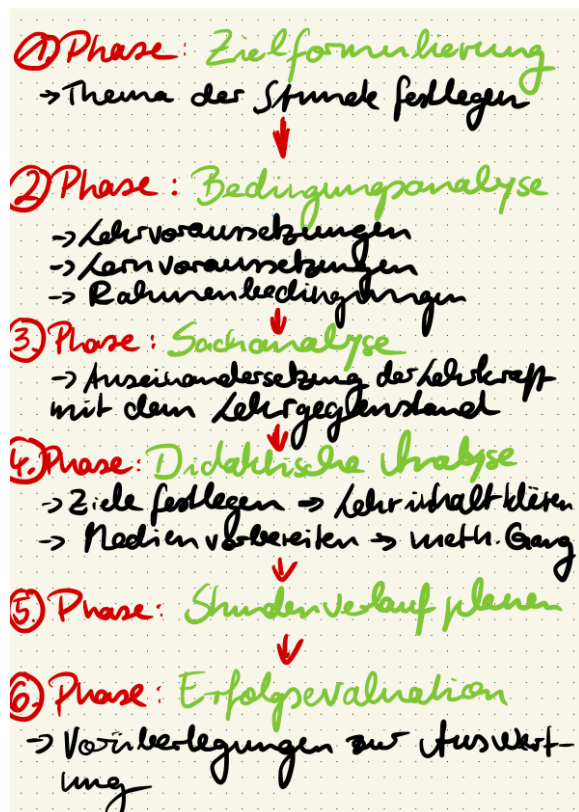 1. Phase: Zielformulierung
→ Thema der Stunde festlegen
2 Phase: Bedingungsanalyse
→ Lehrvoraussetzungen
→ Lernvoraussetzungen
→ Rahmenbedingungen
3. Phase: Sachanalyse
→ Auseinandersetzung der Lehrkraft
mit dem Lehrgegenstand
4. Phase: Didaktische Analyse
→ Ziele festlegen → Lehrinhalt klären
→ Medien vorbereiten → meth. Gang
5. Phase: Stundenverlauf planen
6. Phase: Erfolgsevaluation
→ Vorüberlegungen zur Auswert-
ung